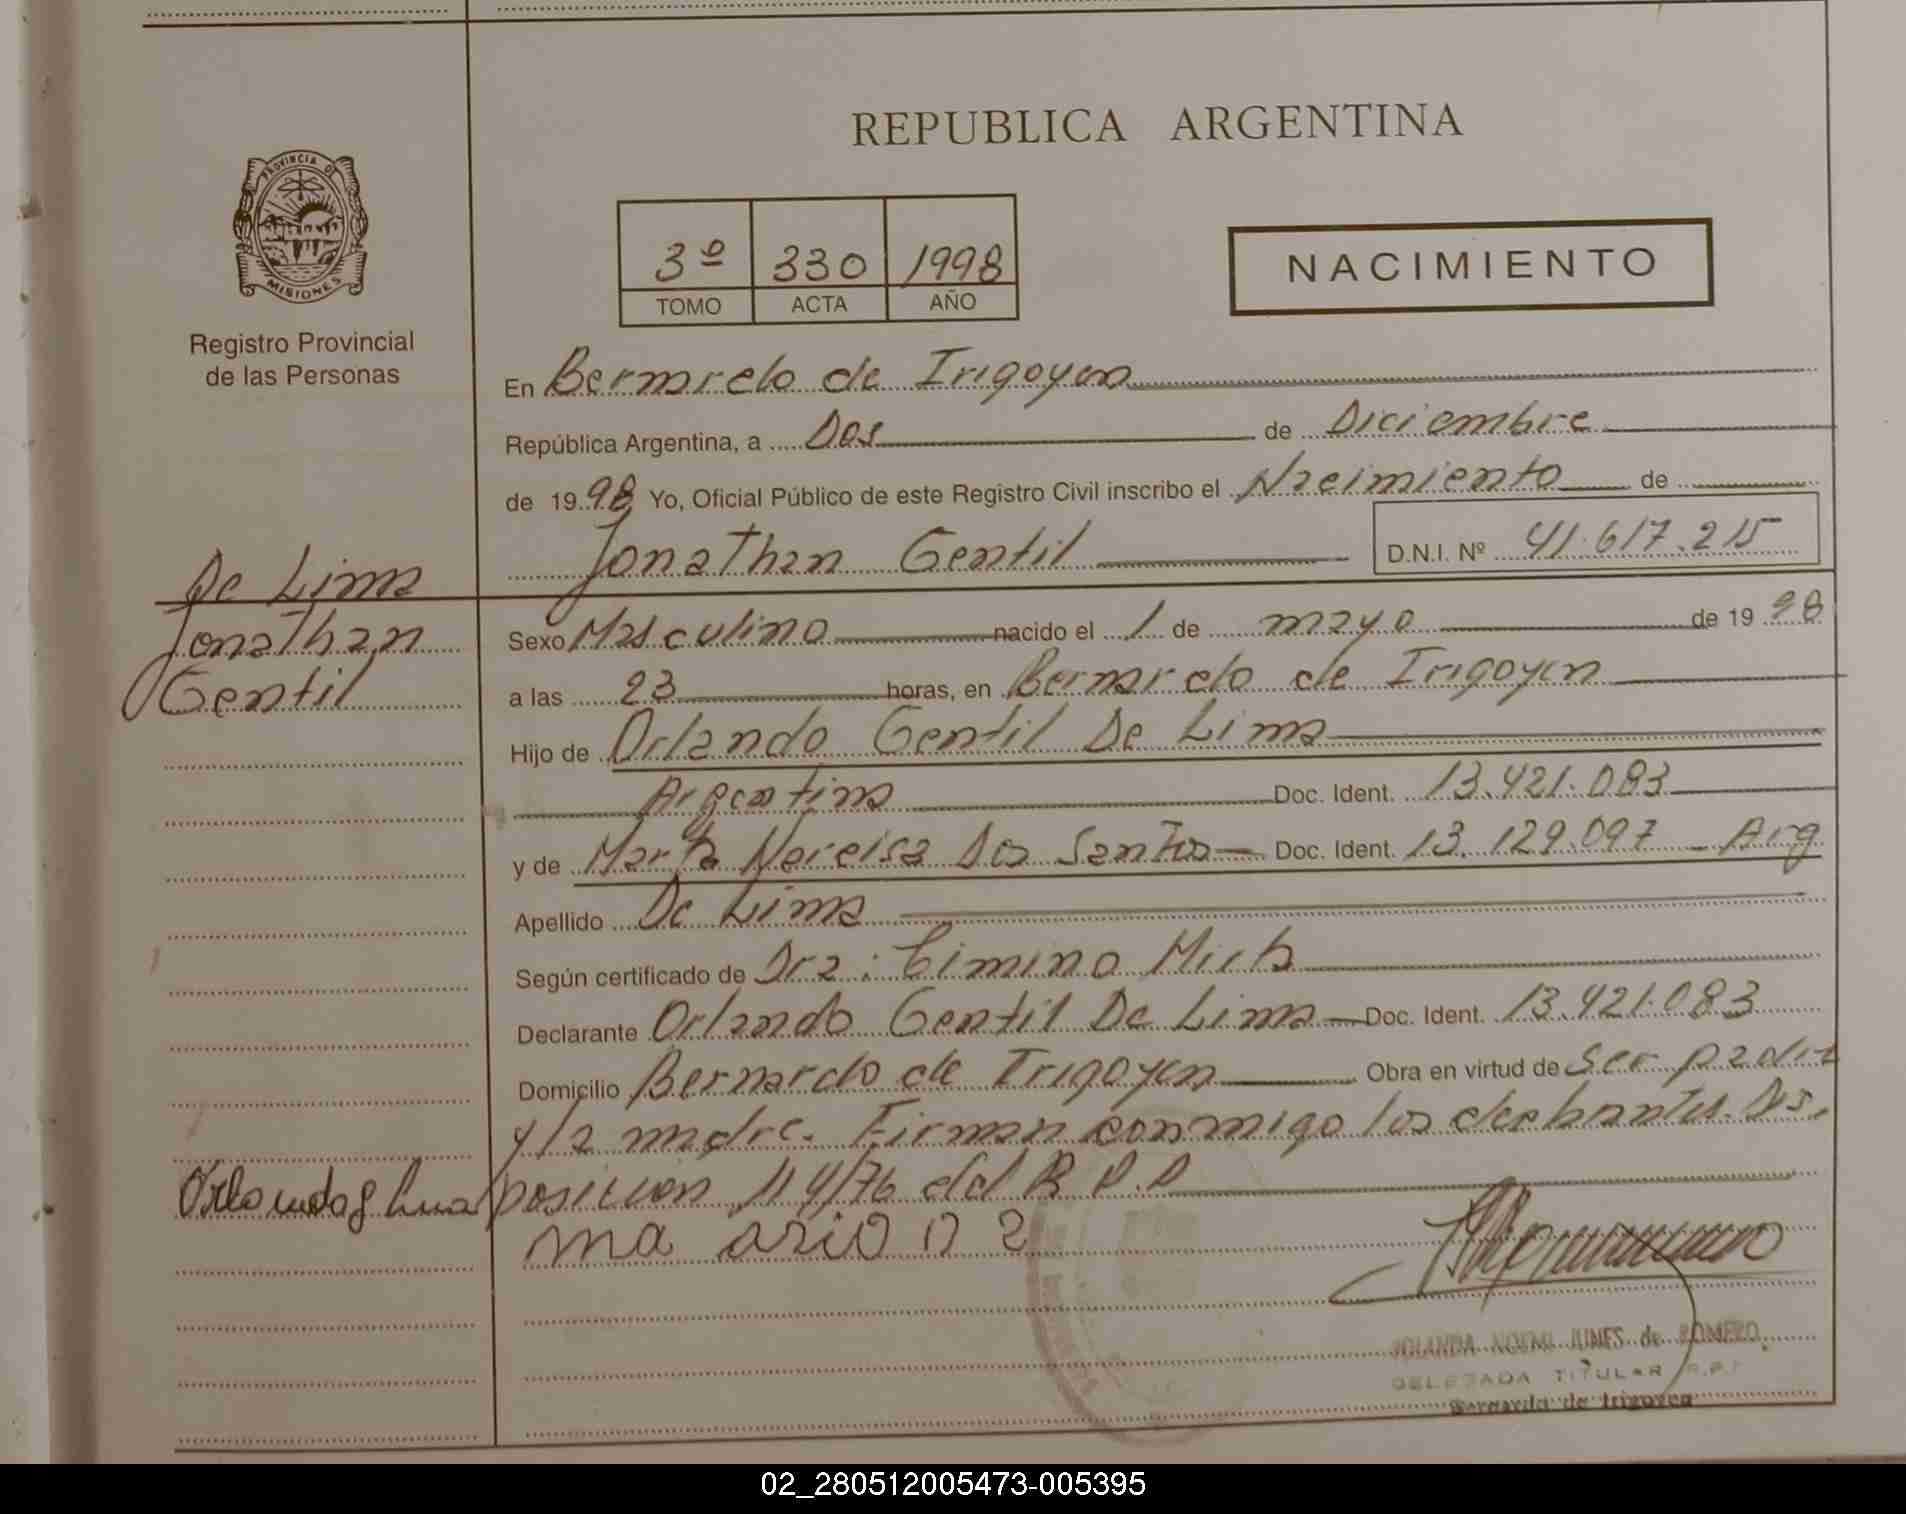 PROVINCIA DE
MISIONES
Registro Provincial
de las Personas
De Lima
Jonathan
Gentil
REPUBLICA ARGENTINA
3º 330 1998
TOMO ACTA AÑO
NACIMIENTO
En Bernardo de Irigoyen
República Argentina, a Dos de Diciembre
de 1998 Yo, Oficial Público de este Registro Civil inscribo el Nacimiento de
Jonathan Gentil D.N.I. Nº 41.617.215
Sexo Masculino nacido el 1 de mayo de 1998
a las 23 horas, en Bernardo de Irigoyen
Hijo de Orlando Gentil De Lima
Argentino Doc. Ident. 13.421.083
y de Marta Narcisa Dos Santos Doc. Ident. 13.129.097 - Arg
Apellido De Lima
Según certificado de Dra: Cimino Mirta
Declarante Orlando Gentil De Lima Doc. Ident. 13.421.083
Domicilio Bernardo de Irigoyen Obra en virtud de Ser padre
y la madre. Firman conmigo los declarantes. Dis.
posicion 114/76 del R.P.P
JOLANDA NOEMI JUNES de ROMERO
DELEGADA TITULAR R.P.P
Bernardo de Irigoyen
02_280512005473-005395